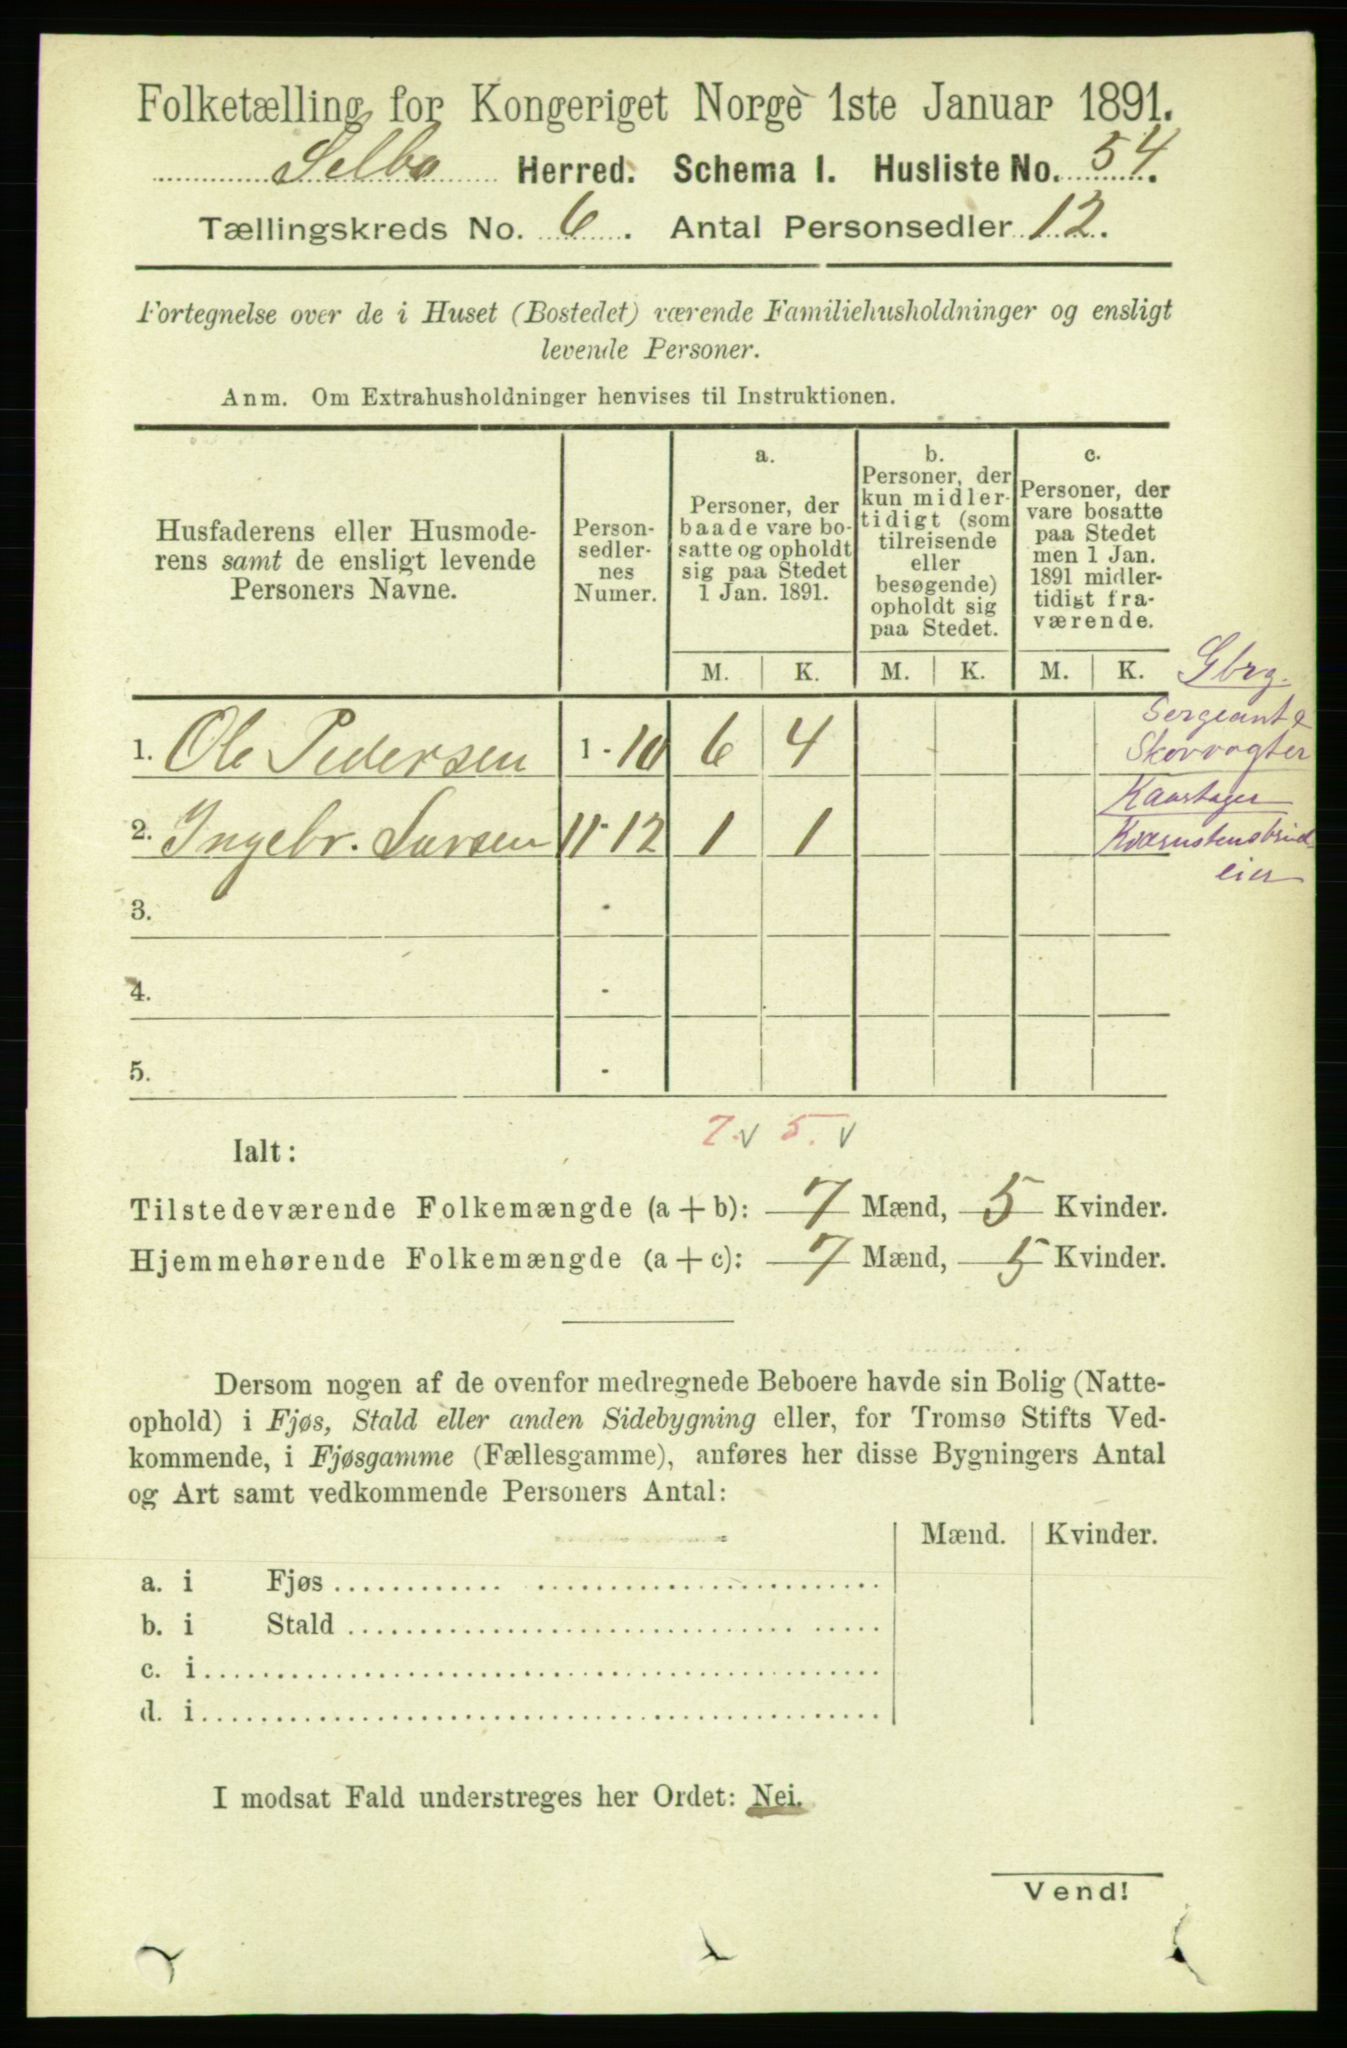 Folketælling for Kongeriget Norge 1ste Januar 1891.
Selbo Herred. Schema 1. Husliste No. 54.
Tællingskreds No. 6. Antal Personsedler 12.
Fortegnelse over de i Huset (Bostedet) værende Familiehusholdninger og ensligt
levende Personer.
Anm. Om Extrahusholdninger henvises til Instruktionen.
Husfaderens eller Husmode-
rens samt de ensligt levende
Personers Navne.
Person-
sedler-
nes
Numer.
a.
Personer, der
baade vare bo-
satte og opholdt
sig paa Stedet
1 Jan. 1891.
b.
Personer, der
kun midler-
tidigt (som
tilreisende
eller
besøgende)
opholdt sig
paa Stedet.
c.
Personer, der
vare bosatte
paa Stedet
men 1 Jan.
1891 midler-
tidigt fra-
værende.
M. K. M. K. M. K. Gbrg.
Sergeant &
Skovvogter
1. Ole Pedersen 1-10 6 4
Kaartager
2. Ingebr. Larsen 11-12 1 1
Kværnstensbrud
eier
3. -
4. -
5. -
7. v 5. v
Ialt:
Tilstedeværende Folkemængde (a + b): 7 Mænd, 5 Kvinder.
Hjemmehørende Folkemængde (a + c): 7 Mænd, 5 Kvinder.
Dersom nogen af de ovenfor medregnede Beboere havde sin Bolig (Natte-
ophold) i Fjøs, Stald eller anden Sidebygning eller, for Tromsø Stifts Ved-
kommende, i Fjøsgamme (Fællesgamme), anføres her disse Bygningers Antal
og Art samt vedkommende Personers Antal:
Mænd. Kvinder.
a. i Fjøs
b. i Stald
c. i
d. i
I modsat Fald understreges her Ordet: Nei.
Vend!